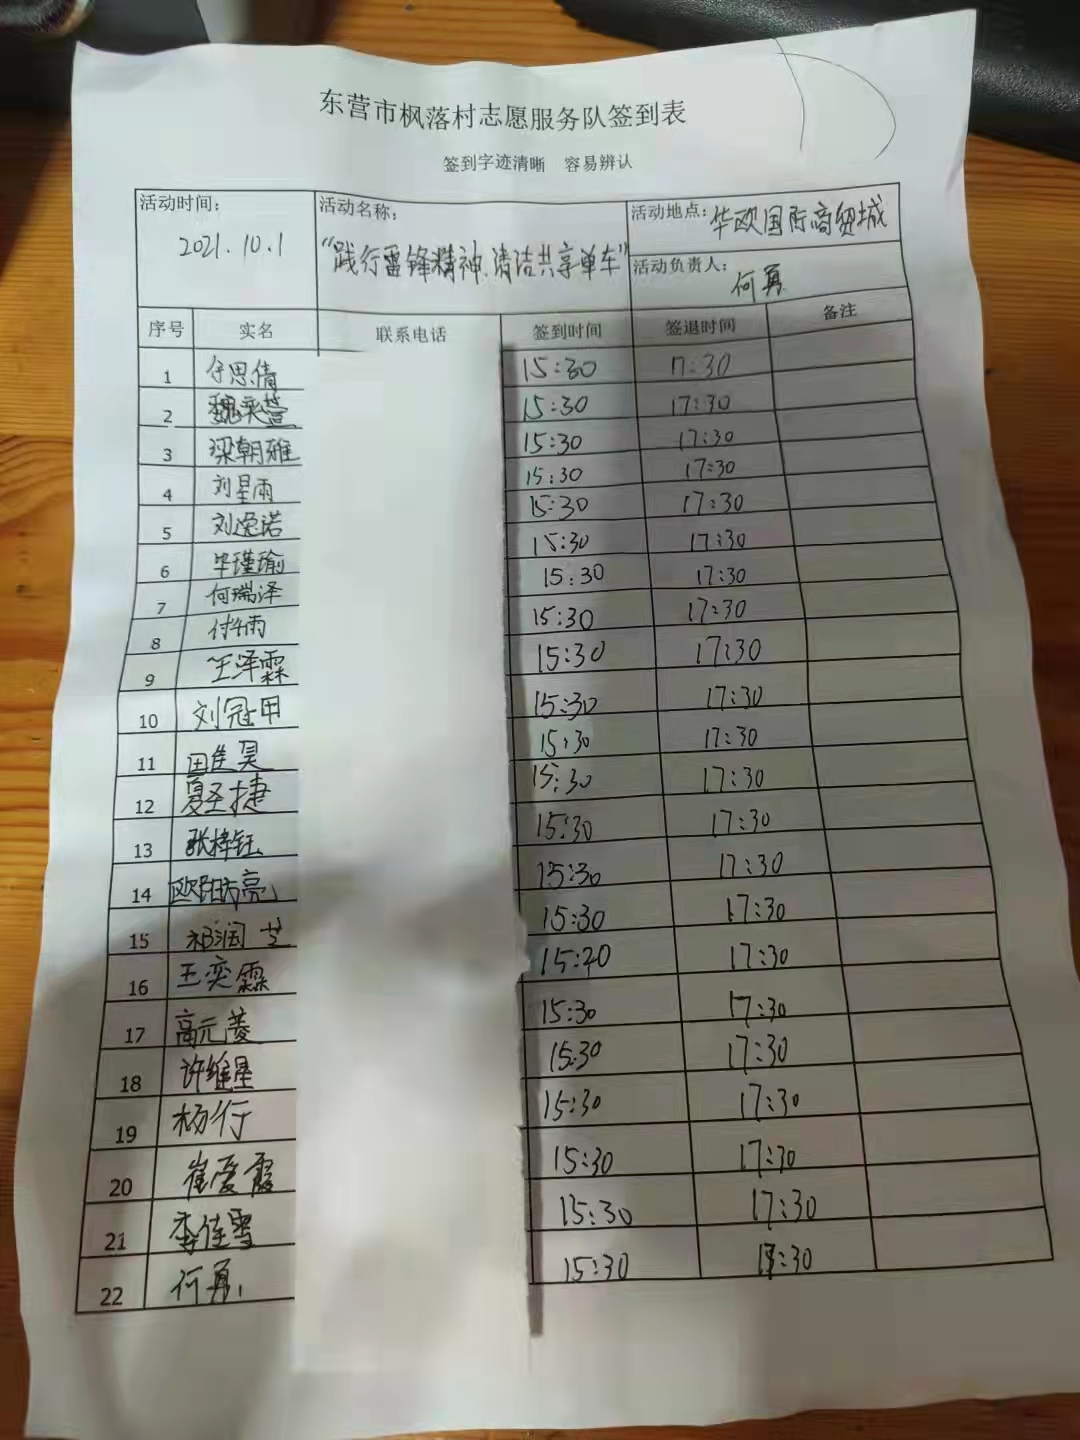 东营市枫落村志愿服务队签到表
签到字迹清晰 容易辨认
活动时间： 2021.10.1
活动名称： “践行雷锋精神、清洁共享单车”
活动地点：华欧国际商贸城
活动负责人： 何勇
序号 实名 联系电话 签到时间 签退时间 备注
1 任思倩 15:30 17:30
2 魏采萱 15:30 17:30
3 梁朝雅 15:30 17:30
4 刘星雨 15:30 17:30
5 刘逸诺 15:30 17:30
6 毕瑾瑜 15:30 17:30
7 何瑞泽 15:30 17:30
8 付千雨 15:30 17:30
9 王泽霖 15:30 17:30
10 刘冠甲 15:30 17:30
11 田隹昊 15:30 17:30
12 夏圣捷 15:30 17:30
13 张梓钰 15:30 17:30
14 欧阳 亮 15:30 17:30
15 祁润芝 15:30 17:30
16 王奕霖 15:20 17:30
17 高元菱 15:30 17:30
18 许维星 15:30 17:30
19 杨行 15:30 17:30
20 崔爱霞 15:30 17:30
21 李佳雪 15:30 17:30
22 何勇 15:30 17:30